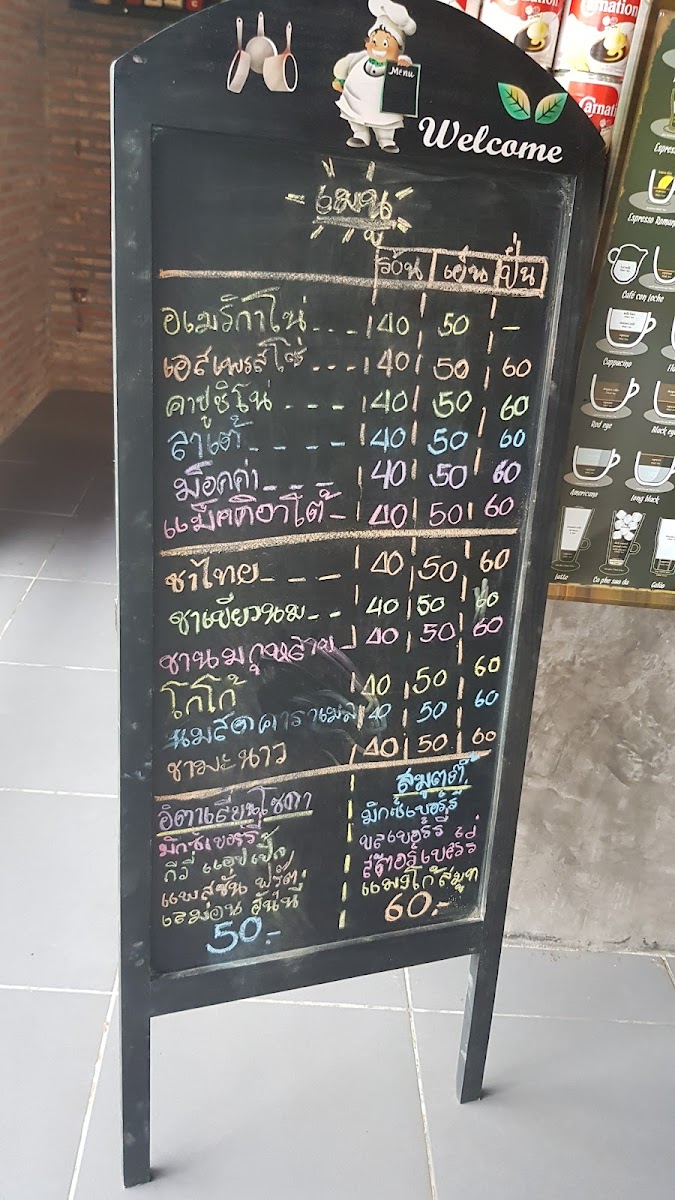 Carnation
Carnation
Menu
Welcome
เมนู
ร้อน เย็น ปั่น
อเมริกาโน่ - - - 40 50 -
เอสเพรสโซ่ 40 50 60
คาปูชิโน่ - - - - 40 50 60
ลาเต้ - - - - 40 50 60
ม็อคค่า - - - - 40 50 60
แม็คคิอาโต้ - 40 50 60
ชาไทย - - - - 40 50 60
ชาเขียวนม - - 40 50 60
ชานมกุหลาบ 40 50 60
โกโก้ 40 50 60
นมสดคาราเมล 40 50 60
ชามะนาว 40 50 60
อิตาเลี่ยนโซดา
มิกซ์เบอร์รี่
กีวี่ แอปเปิ้ล
แพสชั่น ฟรุ๊ต
เลม่อน ฮันนี่
50.-
สมูตตี้
มิกซ์เบอร์รี่
บลูเบอร์รี่
สตอร์เบอร์รี่
แมงโก้
60.-
Espresso Romano
Café con leche
Cappucino
Red eye
Black eye
Americano
long black
latte
Ca phe sua da
Galão